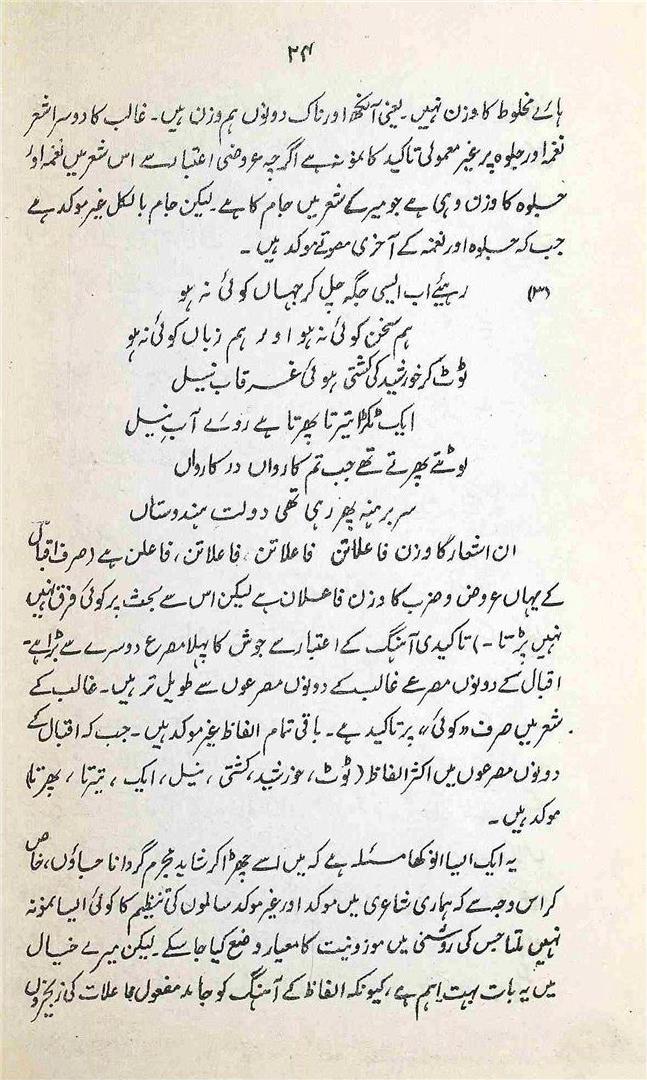 ۲۴
ہائے مخلوط کا وزن نہیں۔ یعنی آنکھ اور ناک دونوں ہم وزن ہیں۔ غالب کا دوسرا شعر
نغمہ اور جلوہ پر غیر معمولی تاکید کا نمونہ ہے اگرچہ عروضی اعتبار سے اس شعر میں نغمہ اور
جلوہ کا وزن وہی ہے جو میر کے شعر میں جام کا ہے۔ لیکن جام بالکل غیر موکد ہے
جب کہ جلوہ اور نغمہ کے آخری مصوتے موکد ہیں۔
(۳) رہیئے اب ایسی جگہ چل کر جہاں کوئی نہ ہو
ہم سخن کوئی نہ ہو اور ہم زباں کوئی نہ ہو
ٹوٹ کر خورشید کی کشتی ہوئی غرقاب نیل
ایک ٹکڑا تیرتا پھرتا ہے روئے آب نیل
لوٹتے پھرتے تھے جب تم کارواں در کارواں
سر برہنہ پھر رہی تھی دولتِ ہندوستاں
ان اشعار کا وزن فاعلاتن فاعلاتن، فاعلاتن، فاعلن ہے (صرف اقبال
کے یہاں عروض و ضرب کا وزن فاعلان ہے لیکن اس سے بحث پر کوئی فرق نہیں
نہیں پڑتا۔) تاکیدی آہنگ کے اعتبار سے جوش کا پہلا مصرع دوسرے سے بڑا ہے۔
اقبال کے دونوں مصرعے غالب کے دونوں مصرعوں سے طویل تر ہیں۔ غالب کے
شعر میں صرف "کوئی" پر تاکید ہے۔ باقی تمام الفاظ غیر موکد ہیں۔ جب کہ اقبال کے
دونوں مصرعوں میں اکثر الفاظ (ٹوٹ، خورشید، کشتی، نیل، ایک، تیرتا، پھرتا)
موکد ہیں۔
یہ ایک ایسا انوکھا مسئلہ ہے کہ میں اسے چھیڑ کر شاید مجرم گردانا جاؤں، خاص
کر اس وجہ سے کہ ہماری شاعری میں موکد اور غیر موکد سالموں کی تنظیم کا کوئی ایسا نمونہ
نہیں ملتا جس کی روشنی میں موزونیت کا معیار وضع کیا جا سکے۔ لیکن میرے خیال
میں یہ بات بہت اہم ہے، کیونکہ الفاظ کے آہنگ کو جامد مفعول فاعلات کی زنجیروں